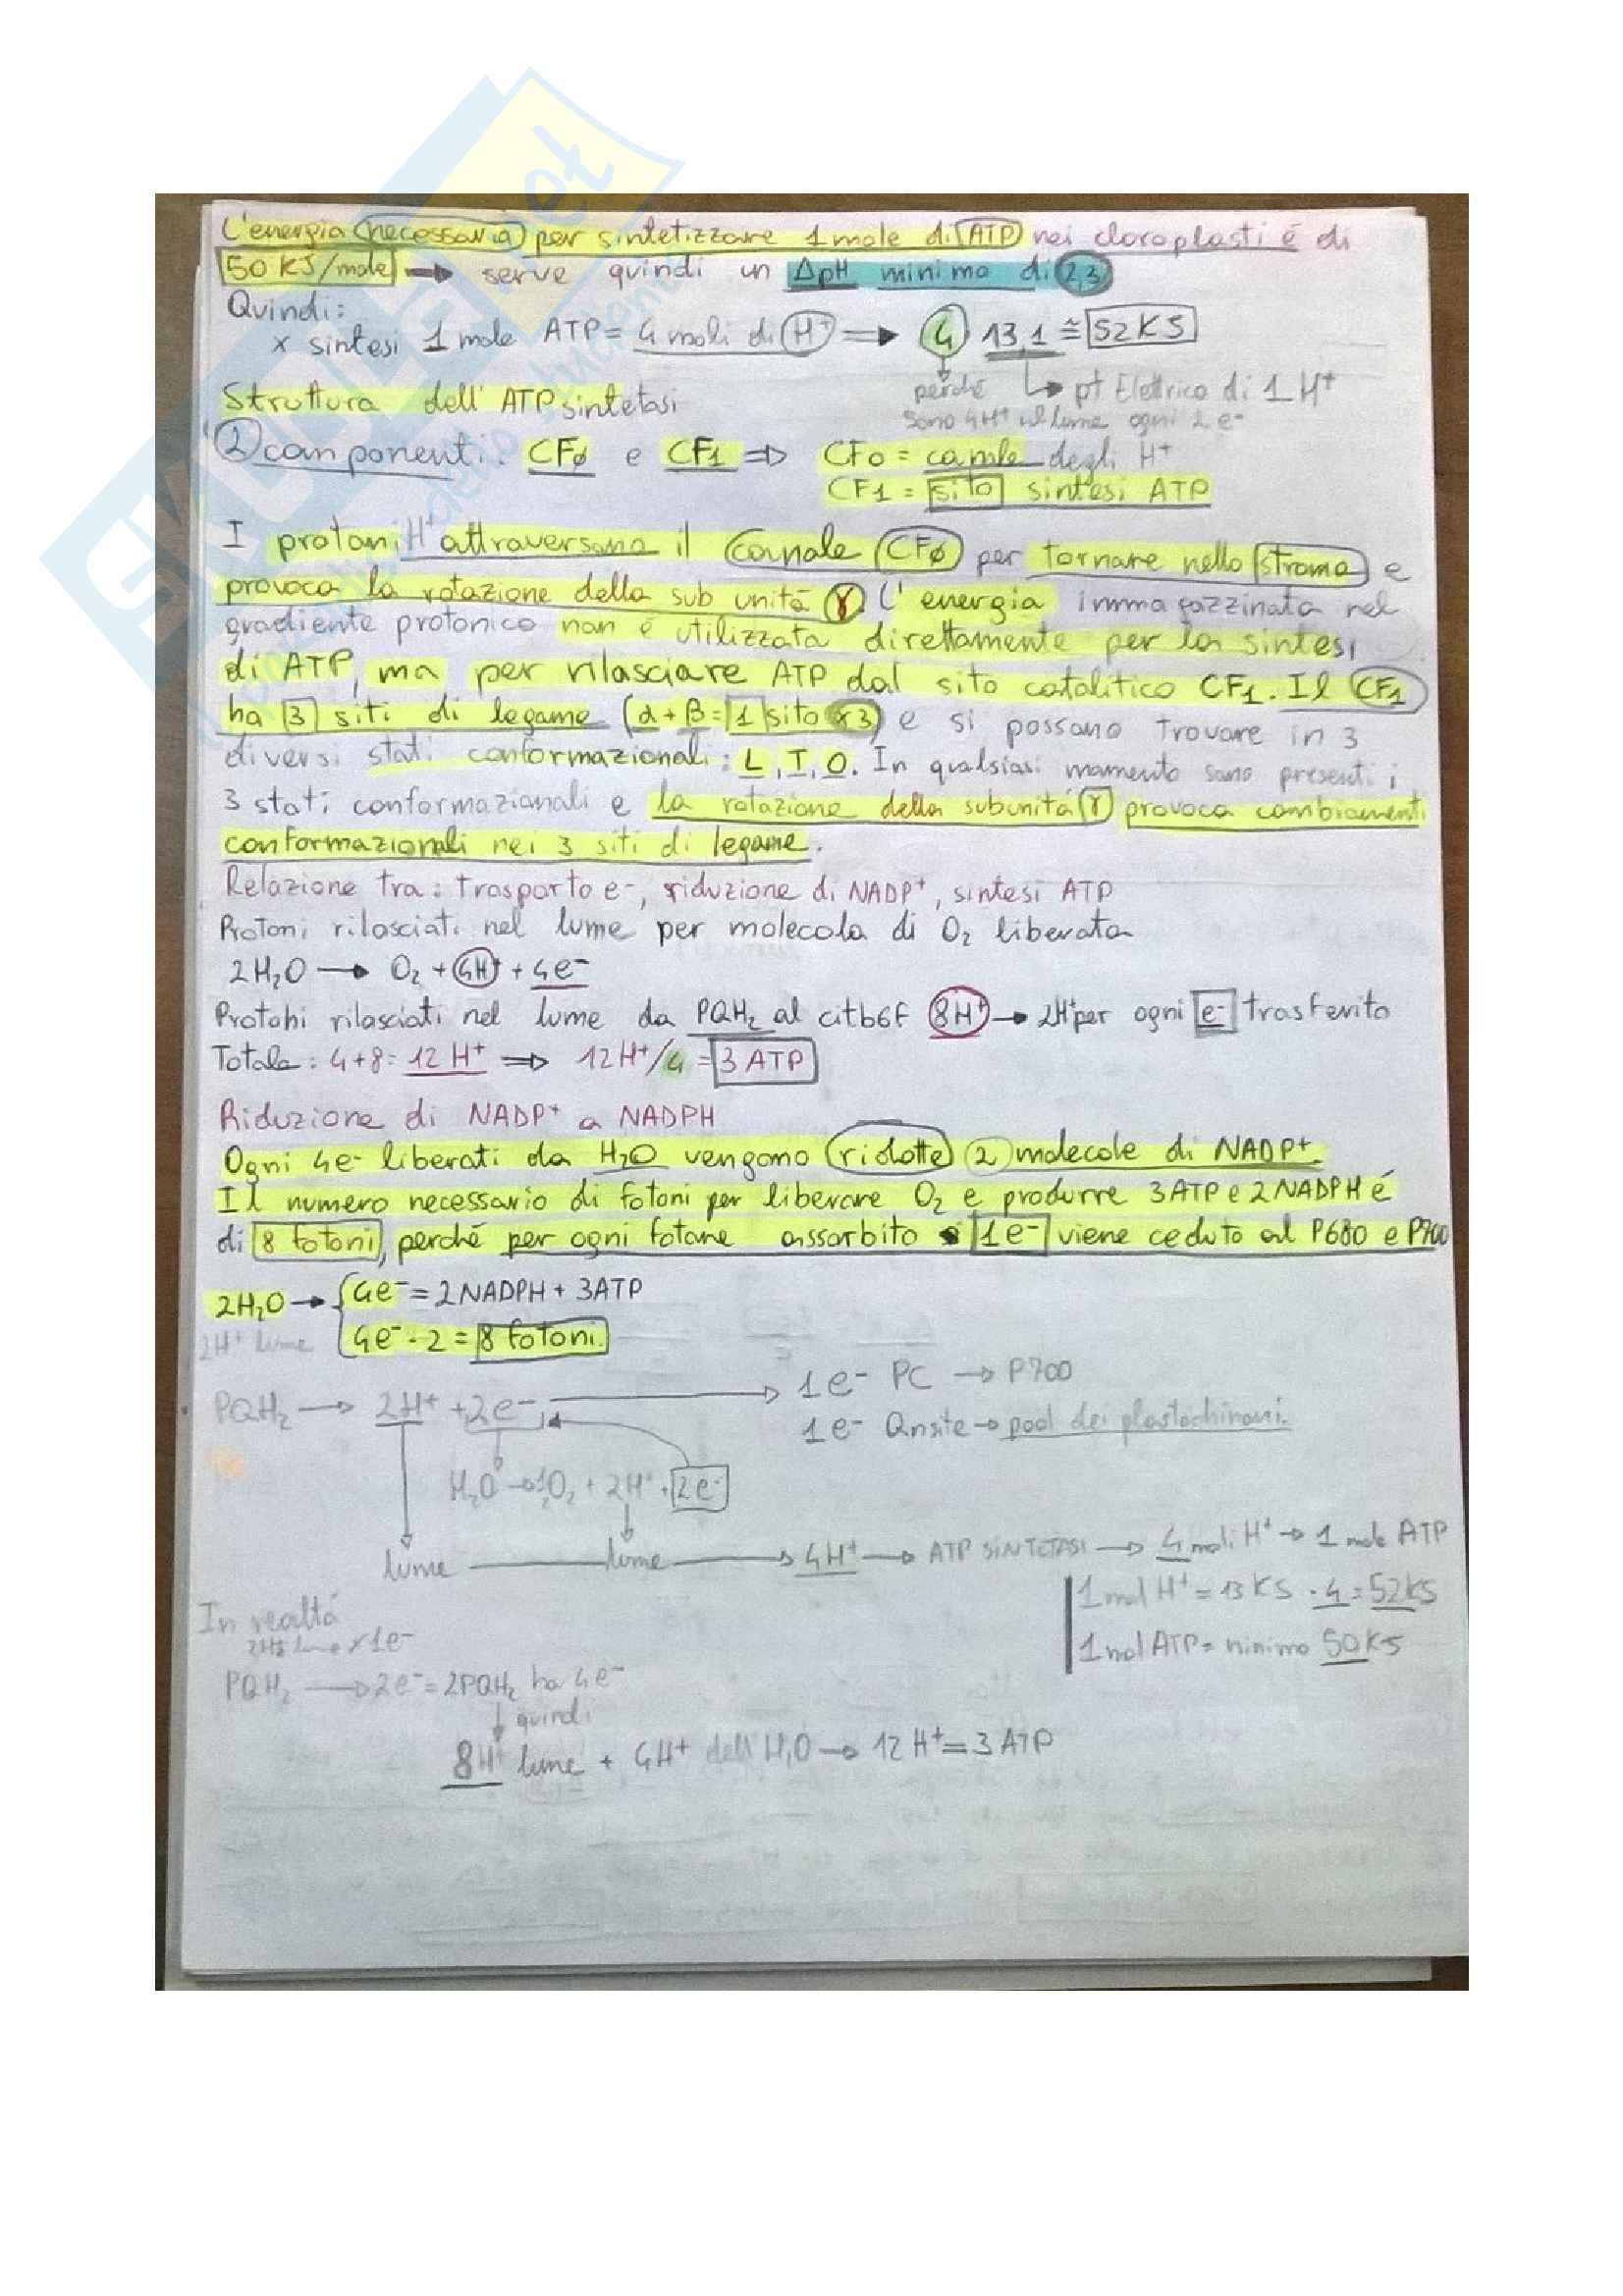 L'energia necessaria per sintetizzare 1 mole di ATP nei cloroplasti é di
50 KJ/mole → serve quindi un ΔpH minimo di 2,3
Quindi:
x sintesi 1 mole ATP = 4 moli di H⁺ ⇒ 4 · 13,1 ≅ 52 KJ
perché ↳ pt Elettrico di 1 H⁺
sono 4H⁺ nel lume ogni 2 e⁻
Struttura dell'ATP sintetasi
2 componenti: CFø e CF1 ⇒ CFo = canale degli H⁺
CF1 = sito sintesi ATP
I protoni H⁺ attraversano il canale CFø per tornare nello stroma e
provoca la rotazione della sub unitá γ. L'energia immagazzinata nel
gradiente protonico non é utilizzata direttamente per la sintesi
di ATP, ma per rilasciare ATP dal sito catalitico CF1. Il CF1
ha 3 siti di legame (α + β = 1 sito x3) e si possono trovare in 3
diversi stati conformazionali: L, T, O. In qualsiasi momento sono presenti i
3 stati conformazionali e la rotazione della subunitá γ provoca cambiamenti
conformazionali nei 3 siti di legame.
Relazione tra: trasporto e⁻, riduzione di NADP⁺, sintesi ATP
Protoni rilasciati nel lume per molecola di O₂ liberata
2H₂O → O₂ + 4H⁺ + 4e⁻
Protoni rilasciati nel lume da PQH₂ al citb6f 8H⁺ → 2H⁺ per ogni e⁻ trasferito
Totale: 4+8 = 12 H⁺ ⇒ 12H⁺/4 = 3 ATP
Riduzione di NADP⁺ a NADPH
Ogni 4e⁻ liberati da H₂O vengono ridotte 2 molecole di NADP⁺
Il numero necessario di fotoni per liberare O₂ e produrre 3ATP e 2NADPH é
di 8 fotoni, perché per ogni fotone assorbito 1e⁻ viene ceduto al P680 e P700
2H₂O → { 4e⁻ = 2NADPH + 3ATP
4e⁻ · 2 = 8 fotoni.
2H⁺ lume
PQH₂ → 2H⁺ + 2e⁻ → 1e⁻ PC → P700
1e⁻ Qnsite → pool dei plastochinoni.
H₂O → ½O₂ + 2H⁺ + 2e⁻
lume → lume → 4H⁺ → ATP SINTETASI → 4 moli H⁺ → 1 mole ATP
1mol H⁺ = 13 KJ · 4 = 52KJ
1mol ATP = minimo 50KJ
In realtá
x 1e⁻
PQH₂ → 2e⁻ = 2PQH₂ ha 4e⁻
↓ quindi
8H⁺ lume + 4H⁺ dell'H₂O → 12H⁺ = 3 ATP